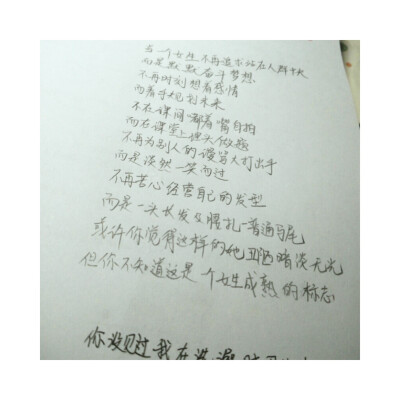 当一个女生不再追求站在人群中央
而是默默奋斗梦想
不再时刻想着感情
而着手规划未来
不在课间嘟着嘴自拍
而在课堂上埋头做题
不再为别人的谩骂大打出手
而是淡然一笑而过
不再苦心经营自己的发型
而是一头长发以腰扎一普通马尾
或许你觉得这样的她丑陋暗淡无光
但你不知道这是一个女生成熟的标志
你没见过我在